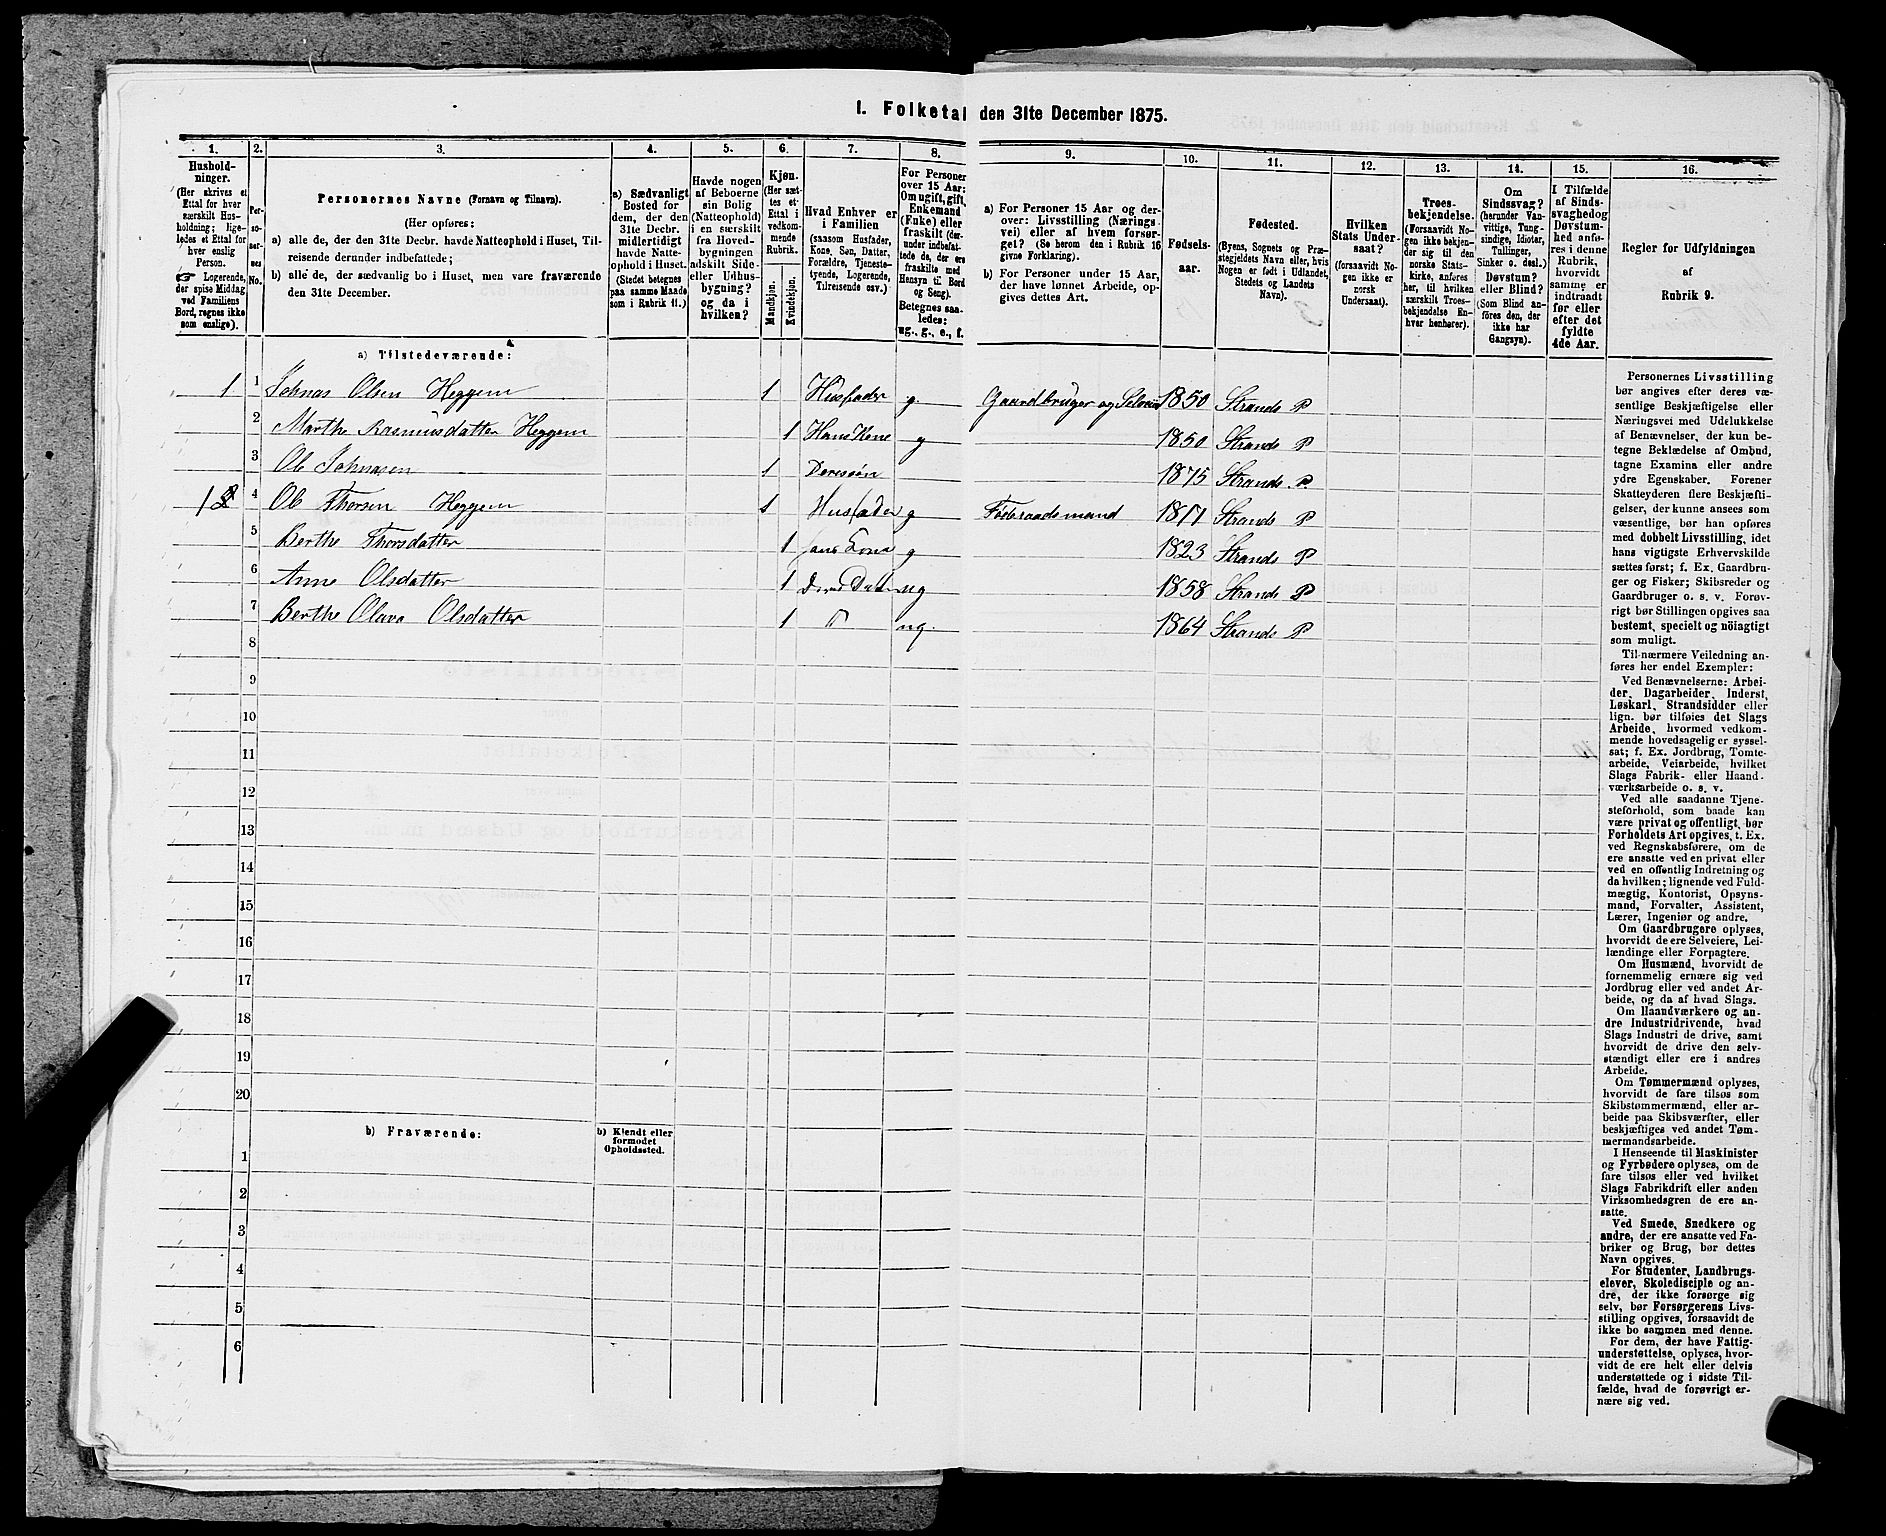 I. Folketal den 31te December 1875.
1. 2. 3. 4. 5. 6. 7. 8. 9. 10. 11. 12. 13. 14. 15. 16.
Hushold-
ninger.
(Her skrives et
Ettal for hver
særskilt Hus-
holdning; lige-
ledes et Ettal for
hver enslig
Person.
☞ Logerende,
der spise Middag
ved Familiens
Bord, regnes ikke
som enslige).
Per-
so-
ner-
nes
No.
Personernes Navne (Fornavn og Tilnavn).
(Her opføres:
a) alle de, der den 31te Decbr. havde Natteophold i Huset, Til-
reisende derunder indbefattede;
b) alle de, der sædvanlig bo i Huset, men vare fraværende
den 31te December.
a) Sædvanligt
Bosted for
dem, der den
31te Decbr.
midlertidigt
havde Natte-
ophold i Huset.
(Stedet betegnes
paa samme Maade
som i Rubrik 11.)
Havde nogen
af Beboerne
sin Bolig
(Natteophold)
i en særskilt
fra Hoved-
bygningen
adskilt Side-
eller Udhus-
bygning?
og da i
hvilken?
Kjøn.
(Her sæt-
tes et
Ettal i
vedkom-
mende
Rubrik.
Mandkjøn.
Kvindekjøn.
Hvad Enhver er
i Familien
(saasom Husfader,
Kone, Søn, Datter,
Forældre, Tjeneste-
tyende, Logerende,
Tilreisende osv.)
For Personer
over 15 Aar:
Om ugift, gift,
Enkemand
(Enke) eller
fraskilt (der-
under indbefat-
tede de, der ere
fraskilte med
Hensyn til Bord
og Seng).
Betegnes saa-
ledes:
ug., g., e., f.
a) For Personer 15 Aar og der-
over: Livsstilling (Nærings-
vei) eller af hvem forsør-
get? (Se herom den i Rubrik 16
givne Forklaring).
b) For Personer under 15 Aar,
der have lønnet Arbeide, op-
gives dettes Art.
Fødsels-
aar.
Fødested.
(Byens, Sognets og Præ-
stegjeldets Navn eller, hvis
Nogen er født i Udlandet,
Stedets og Landets
Navn).
Hvilken
Stats Under-
saat?
(forsaavidt No-
gen ikke er
norsk
Undersaat).
Troes-
bekjendelse.
(Forsaavidt No-
gen ikke bekjen-
der sig til den
norske Stats-
kirke, anføres
her, til hvilken
særskilt Troes-
bekjendelse En-
hver henhører).
Om
Sindssvag?
(herunder Van-
vittige, Tung-
sindige, Idioter,
Tullinger,
Sinker o. desl.)
Døvstum?
eller Blind?
(Som Blind an-
føres den, der
ikke har
Gangsyn).
I Tilfælde
af Sinds-
svaghed og
Døvstum-
hed anfø-
res i denne
Rubrik,
hvorvidt
samme er
indtraadt
før eller
efter det
fyldte
4de Aar.
Regler for Udfyldningen
af
Rubrik 9.
a) Tilstedeværende:
1 1 Johnas Olsen Heggem 1 Husfader g. Gaardbruger og Selveier 1850 Strands P
2 Marthe Rasmusdatter Heggem 1 Hans Kone g 1850 Strands P
3 Ole Johnasen 1 Deressøn 1875 Strands P.
1 4 Ole Thorsen Heggem 1 Husfader g Føderaadsmand Strands P
5 Berthe Thorsdatter 1 Hans Kone g 1823 Strands P
6 Anne Olsdatter 1 ug 1858 Strands P
7 Berthe Olava Olsdatter 1 ug. 1864 Strands P
8
9
10
11
12
13
14
15
16
17
18
19
20
b) Fraværende: b) Kjendt eller
formodet
Opholdssted.
1
2
3
4
5
6
Personernes Livsstilling
bør angives efter deres væ-
sentlige Beskjæftigelse eller
Næringsvei med Udelukkelse
af Benævnelser, der kun be-
tegne Beklædelse af Ombud,
tagne Examina eller andre
ydre Egenskaber. Forener
Skatteyderen flere Beskjæfti-
gelser, der kunne ansees som
væsentlige, bør han opføres
med dobbelt Livsstilling, idet
hans vigtigste Erhvervskilde
sættes først; f. Ex. Gaardbru-
ger og Fisker; Skibsreder og
Gaardbruger o. s. v. Forøv-
rigt bør Stillingen opgives saa
bestemt, specielt og nöiagtigt
som muligt.
Til nærmere Veiledning an-
føres her endel Exempler:
Ved Benævnelserne: Arbei-
der, Dagarbeider, Inderst,
Løskarl, Strandsidder eller
lign. bør tilføies det Slags
Arbeide, hvormed vedkom-
mende hovedsagelig er syssel-
sat; f. Ex. Jordbrug, Tomte-
arbeide, Veiarbeide, hvilket
Slags Fabrik- eller Haand-
værksarbeide o. s. v.
Ved alle saadanne Tjene-
steforhold, som baade kan
være privat og offentligt, bør
Forholdets Art opgives, t. Ex.
ved Regnskabsførere, om de
ere ansatte ved en privat eller
ved en offentlig Indretning og
da hvilken; lignende ved Fuld-
mægtig, Kontorist, Opsyns-
mand, Forvalter, Assistent,
Lærer, Ingeniør og andre.
Om Gaardbrugere oplyses,
hvorvidt de ere Selveiere, Lei-
lændinge eller Forpagtere.
Om Husmænd, hvorvidt de
fornemmelig ernære sig ved
Jordbrug eller ved andet Ar-
beide, og da af hvad Slags.
Om Haandværkere og an-
dre Industridrivende, hvad
Slags Industri de drive, samt
hvorvidt de drive den selv-
stændigt eller ere i andres
Arbeide.
Om Tømmermænd oplyses,
hvorvidt de fare tilsøs som
Skibstømmermænd, eller ar-
beide paa Skibsværfter, eller
beskjæftiges ved andet Tøm-
mermandsarbeide.
I Henseende til Maskinister
og Fyrbødere oplyses, om de
fare tilsøs eller ved hvilket
Slags Fabrikdrift eller anden
Virksomhedsgren de ere an-
satte.
Ved Smede, Snedkere og
andre, der ere ansatte ved Fa-
briker og Brug, bør dettes
Navn opgives.
For Studenter, Landbrugs-
elever, Skoledisciple og an-
dre, der ikke forsørge sig
selv, bør Forsørgerens Livs-
stilling opgives, forsaavidt de
ikke bo sammen med denne.
For dem, der have Fattig-
understøttelse, oplyses, hvor-
vidt de ere helt eller delvis
understøttede og i sidste Til-
fælde, hvad de forøvrigt er-
nære sig ved.